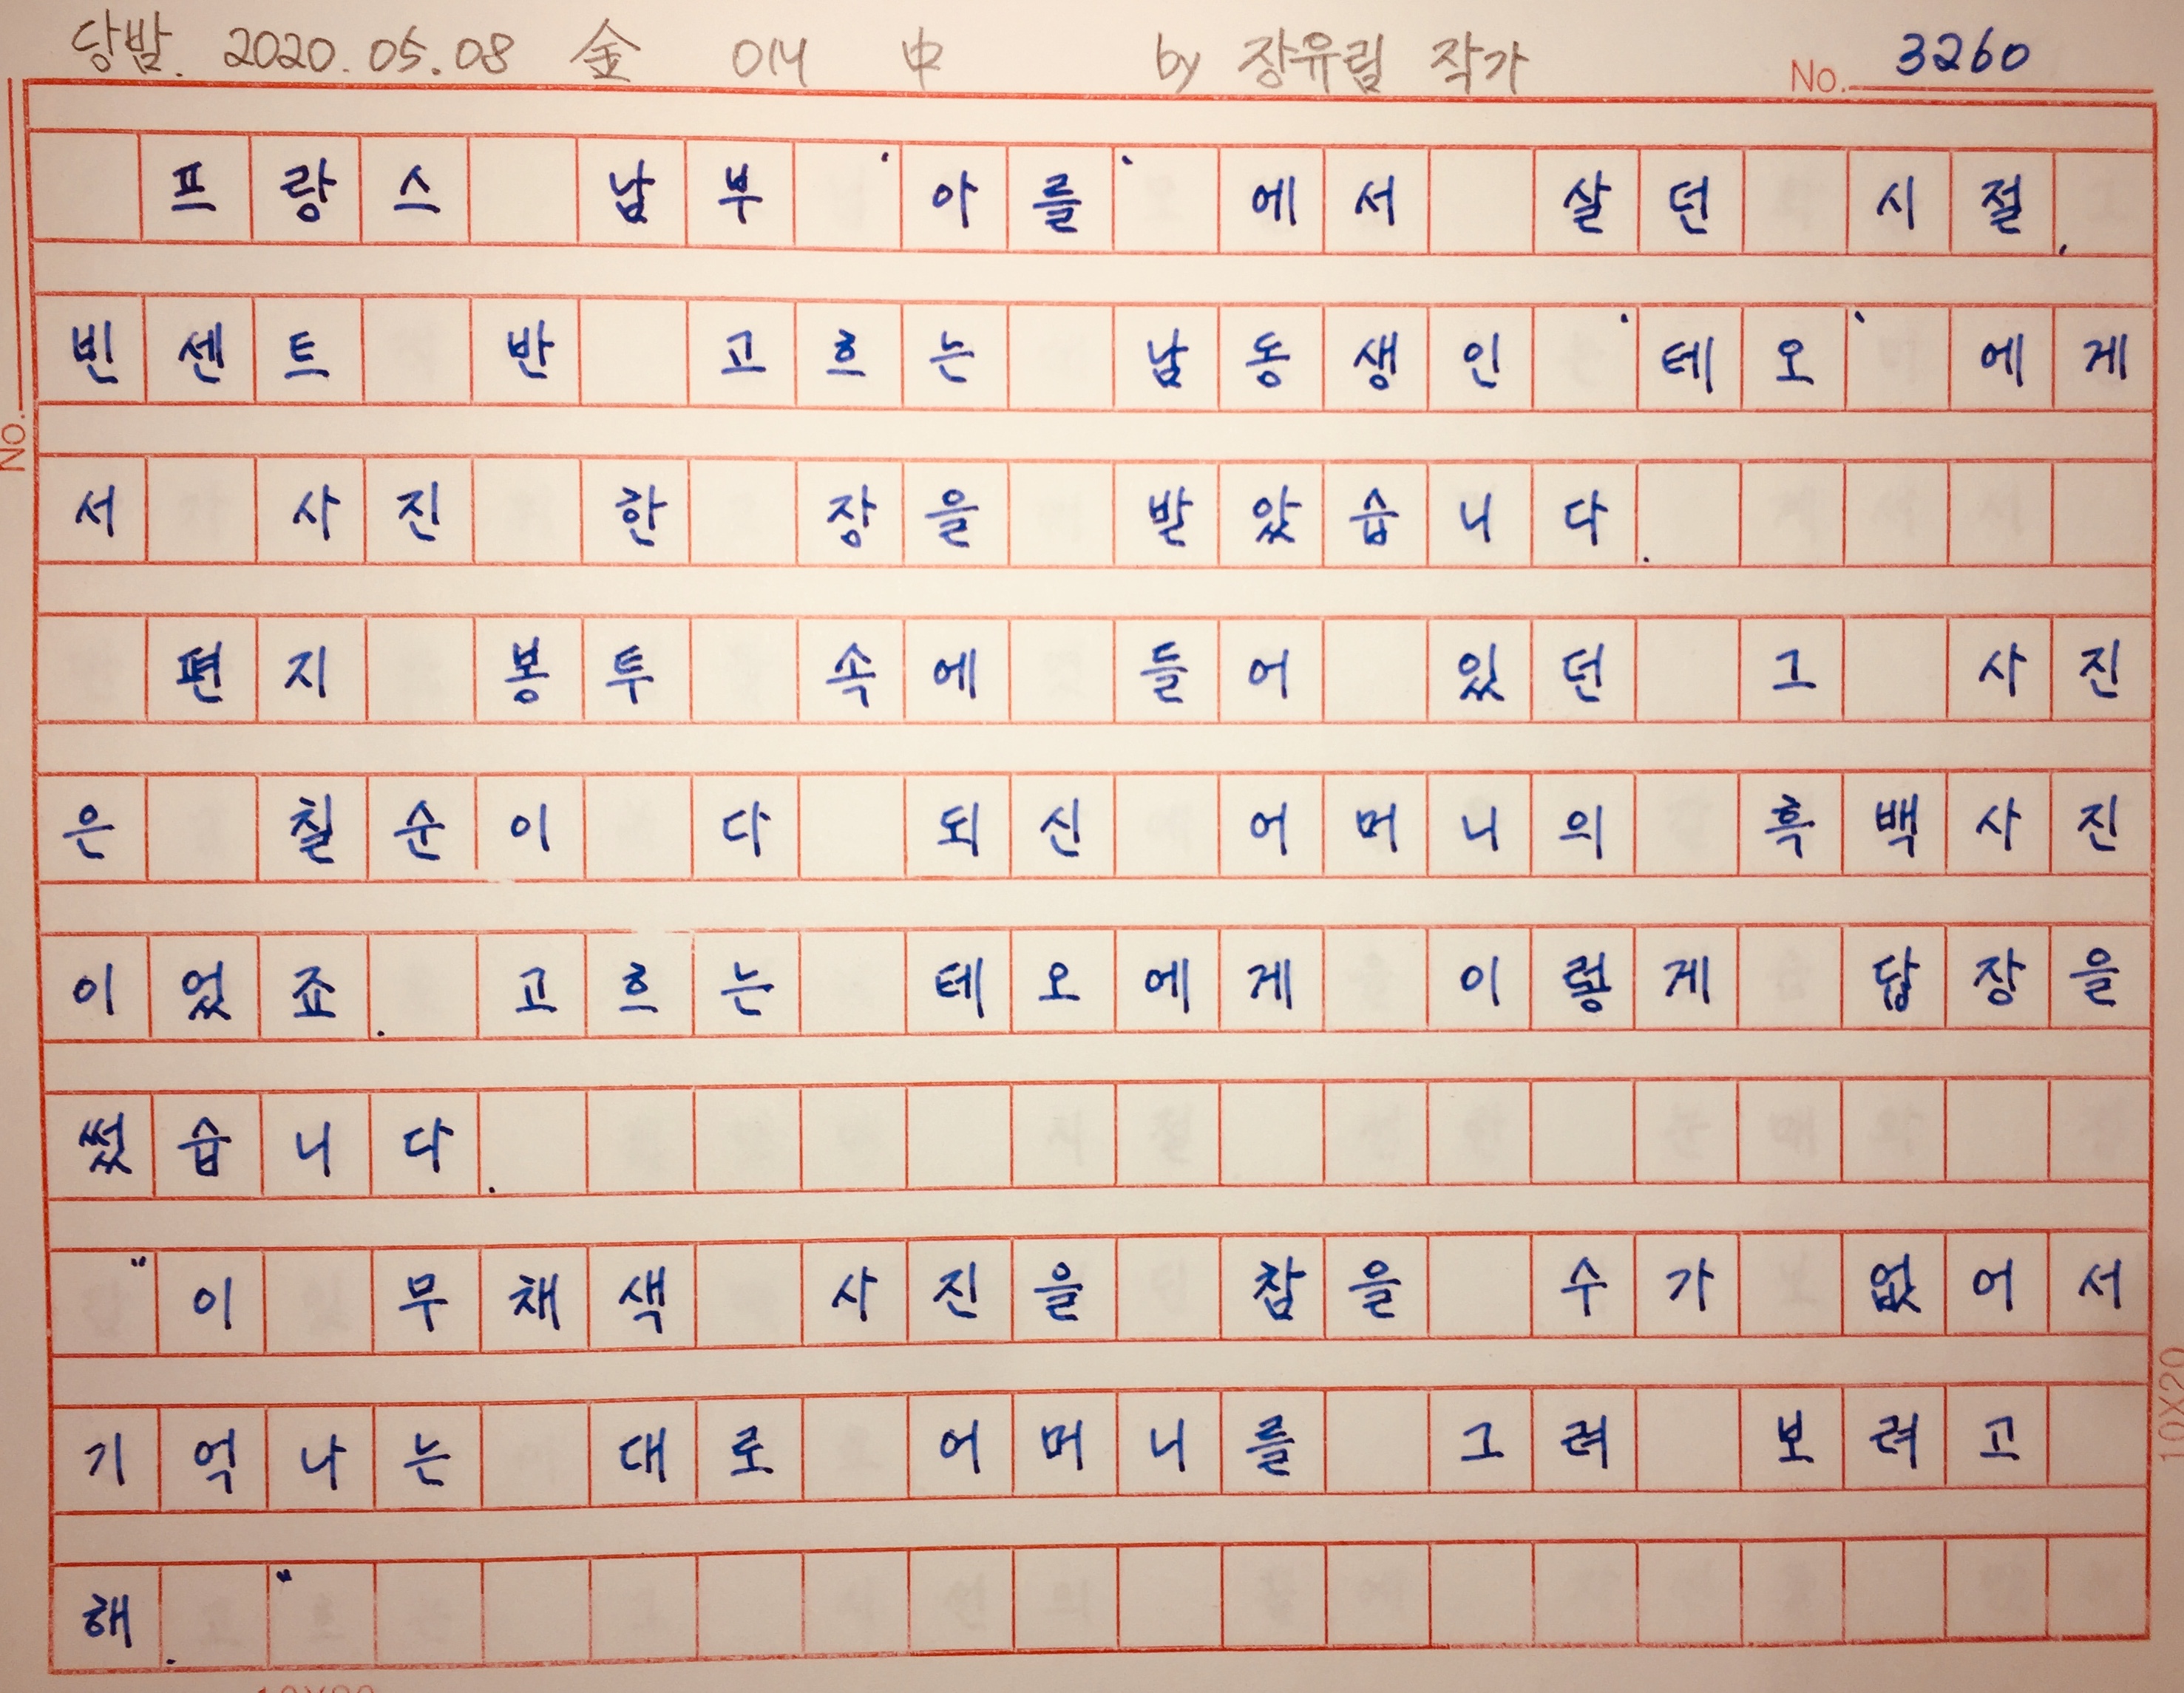 당밤. 2020.05.08 金 014 中 by 장유림 작가 No. 3260
프랑스 남부 '아를'에서 살던 시절,
빈센트 반 고흐는 남동생인 '테오'에게
서 사진 한 장을 받았습니다.
편지 봉투 속에 들어 있던 그 사진
은 칠순이 다 되신 어머니의 흑백사진
이었죠. 고흐는 테오에게 이렇게 답장을
썼습니다.
"이 무채색 사진을 참을 수가 없어서
기억나는 대로 어머니를 그려 보려고
해."
No.
10X20